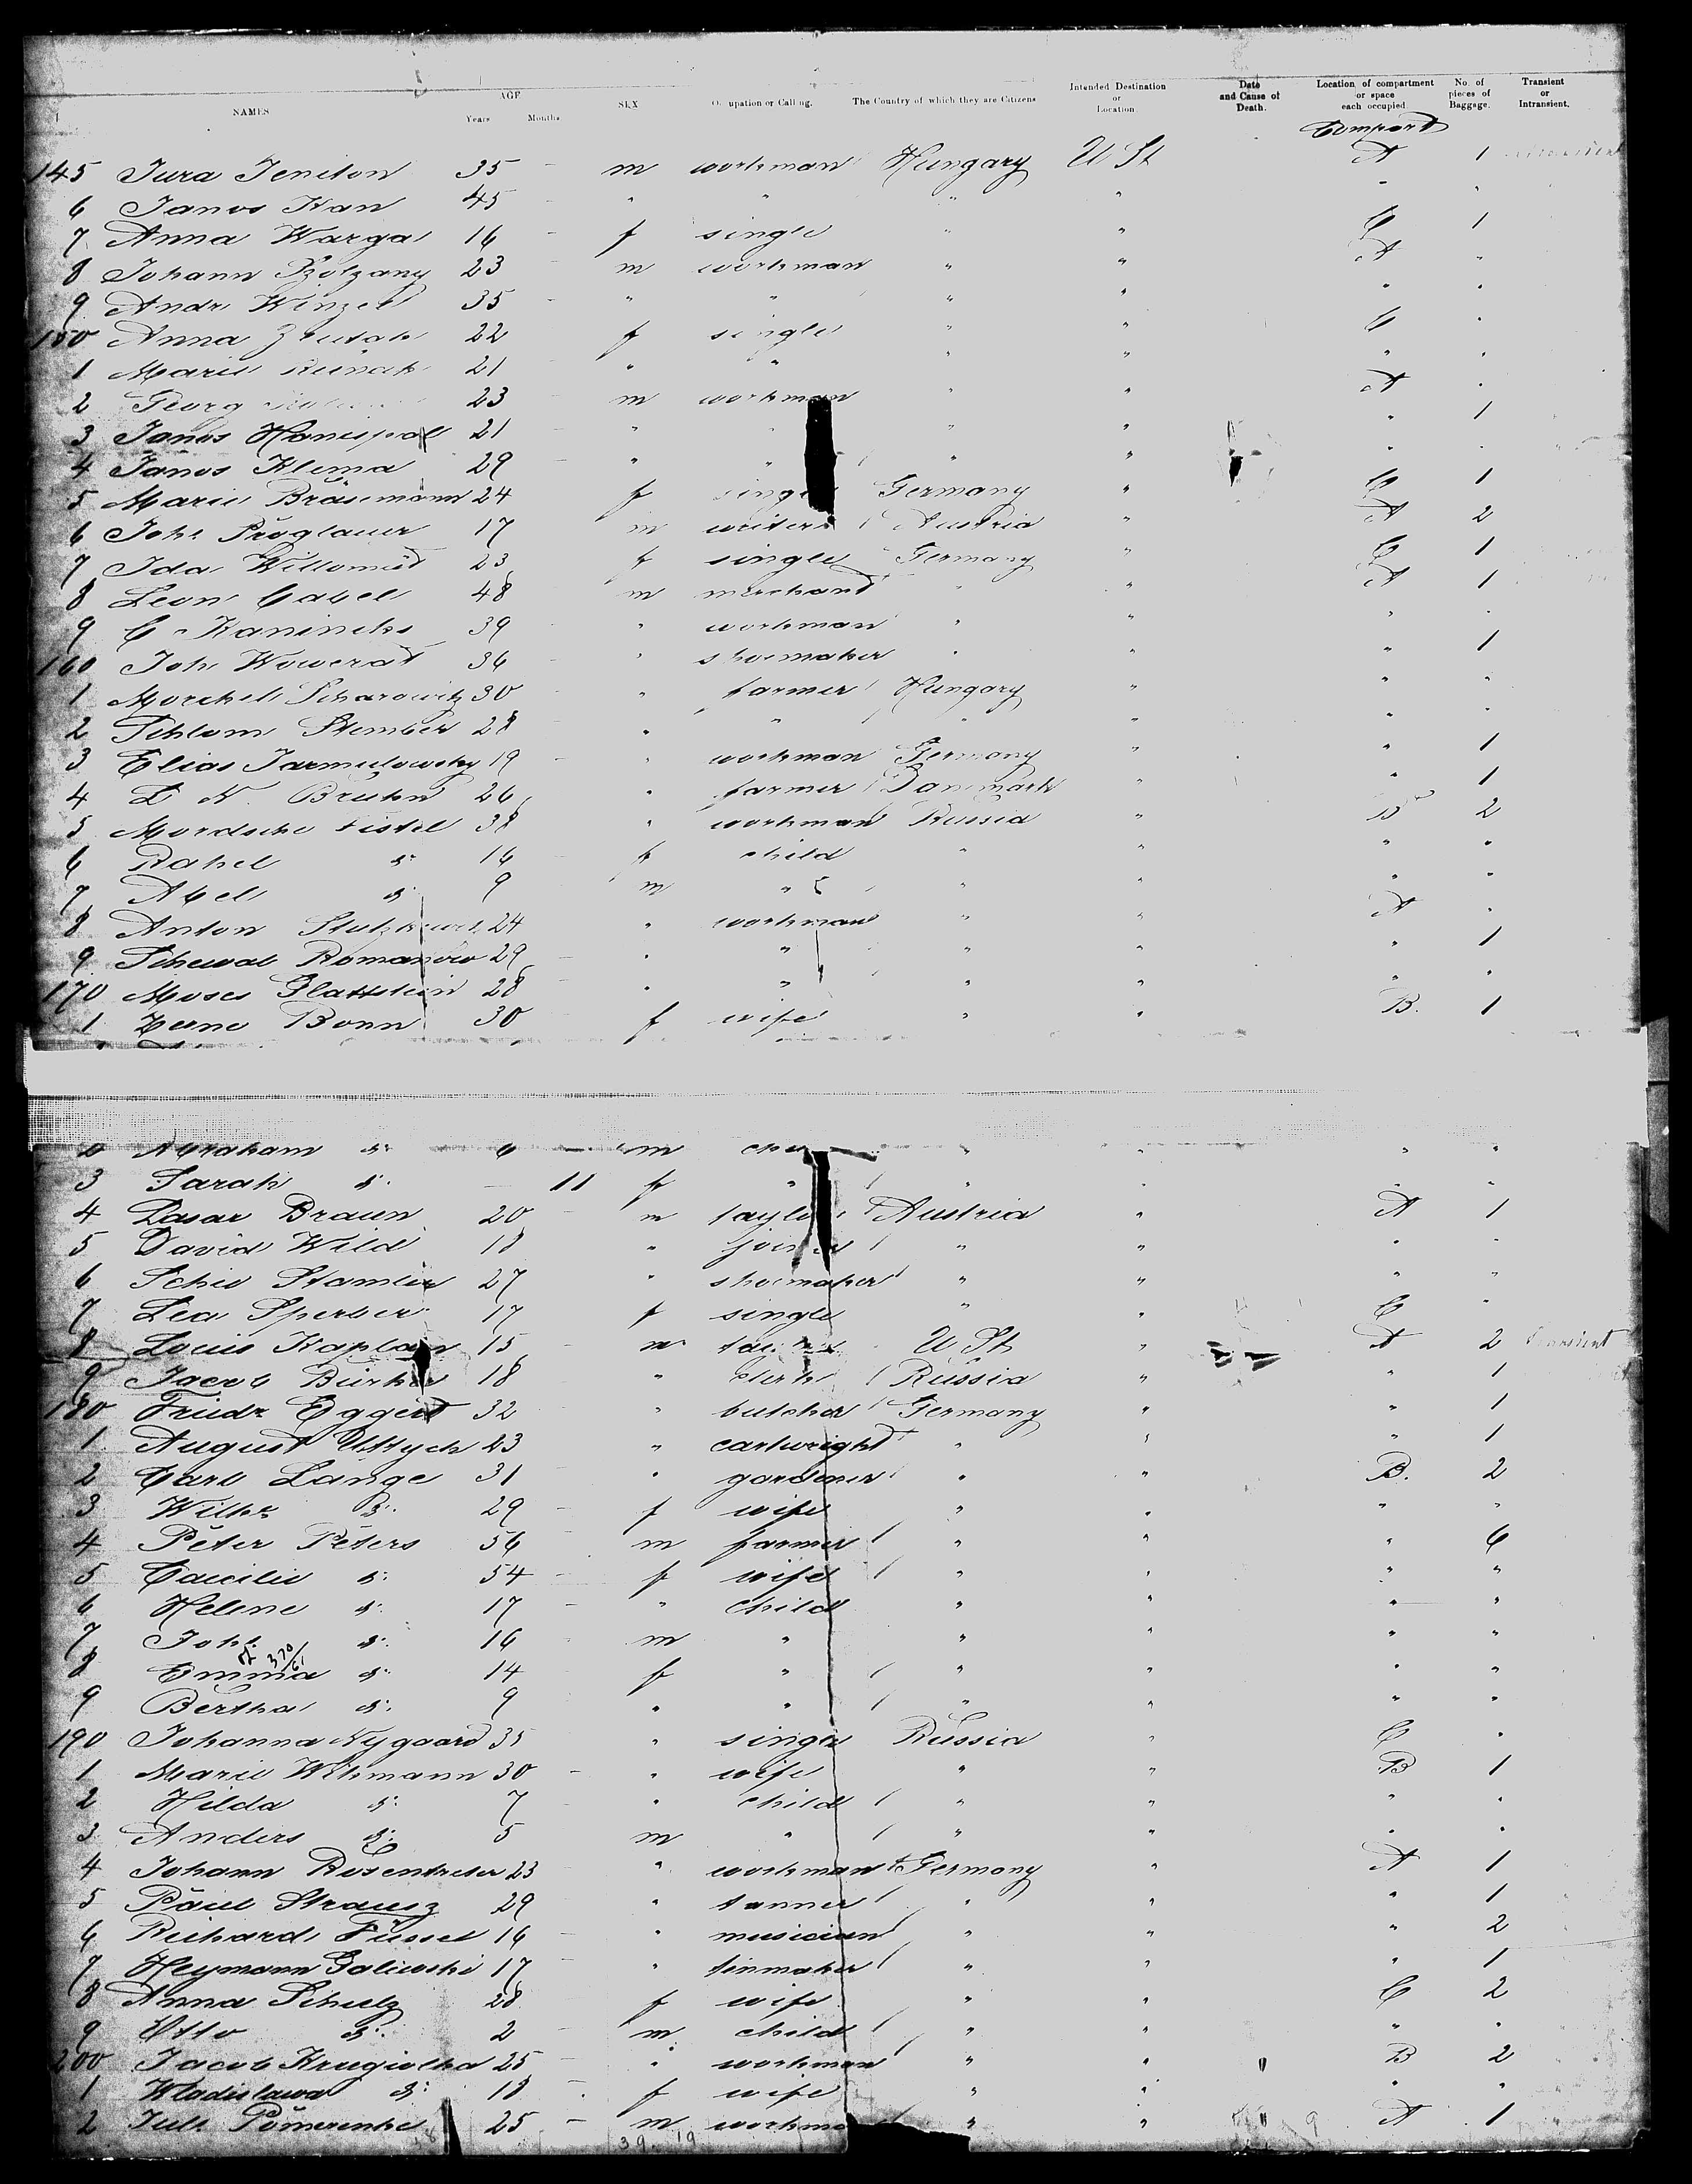 NAMES AGE Years Months SEX Occupation or Calling. The Country of which they are Citizens Intended Destination or Location Date and Cause of Death. Location of compartment or space each occupied No. of pieces of Baggage. Transient or Intransient.
Compart
145 Jura Jeniton 35 - m workman Hungary U St A 1
6 Janos Kan 45 - " " " " " "
7 Anna Warga 16 - f single " " C 1
8 Johann 23 m workman " " A "
9 Andr Winzel 35 - " " " " " "
150 Anna 22 f single " " C "
1 Marie 21 " " " " " "
2 Georg 23 m workman " " A "
3 Janos Hanispal 21 " " " " " 1
4 Janos Klema 29 - " " " " " "
5 Marie Bräsemann 24 f single Germany " C 1
6 Joh. Proglauer 17 m writer Austria " A 2
7 Ida Willomüt 23 f single Germany " C 1
8 Leon Cabel 48 m merchant " " A 1
9 C. Kanincks 39 " workman " " " "
160 Joh Wowerat 36 " shoemaker " " " 1
1 Morchel Scharowitz 30 " farmer Hungary " " "
2 Schlom Stember 28 " " " " " "
3 Elias Jarmulowsky 19 " workman Germany " " 1
4 L N. Bruhn 26 " farmer Danmark " " 1
5 Mordsche Fistel 38 " workman Russia " B 2
6 Rahel d: 16 f child " " " "
7 Abel d: 9 m " " " " "
8 Anton 24 " workman " " A "
9 Schewal Romanow 29 " " " " " 1
170 Moses Glattstein 28 " " " " " "
1 Zerne Bonn 30 f wife " " B. 1
2 Abraham d: 6 m " " " "
3 Sarah d: - 11 f " " " " "
4 Lasar Braun 20 m taylor Austria " A 1
5 David Wild 18 " joiner " " " "
6 Schie Stamler 27 " shoemaker " " " "
7 Lea Sperber 17 f single " " C "
8 Louis Kaplan 15 m U St " A 2 Transient
9 Jacob 18 " clerk Russia " " 1
180 Friedr Eggert 32 " butcher Germany " " 1
1 August Uttych 23 " cartwright " " " 1
2 Carl Lange 31 " gardener " " B. 2
3 Wilhe d: 29 f wife " " " "
4 Peter Peters 56 m farmer " " " 6
5 Caecilie d: 54 f wife " " " "
6 Helene d: 17 " child " " " "
7 Joh. d: 16 m " " " " "
8 Emma d: 14 f " " " " "
9 Bertha d: 9 " " " " " "
190 Johanna Nygaard 35 " single Russia " C "
1 Marie Wikmann 30 " wife " " B 1
2 Hilda d: 7 " child " " " "
3 Anders d: 5 m " " " " "
4 Johann Rosentreter 23 " workman Germany " A 1
5 Paul Strausz 29 " tanner " " " 1
6 Richard Füssel 16 " musician " " " 2
7 Heymann Galiewski 17 " tinmaker " " " 1
8 Anna Schulz 28 f wife " " C 2
9 Otto d: 2 m child " " " "
200 Jacob Krugiolka 25 " workman " " B 2
1 Wladislawa d: 18 f wife " " " "
2 Jul. Pomerenke 25 - m workman " " A 1